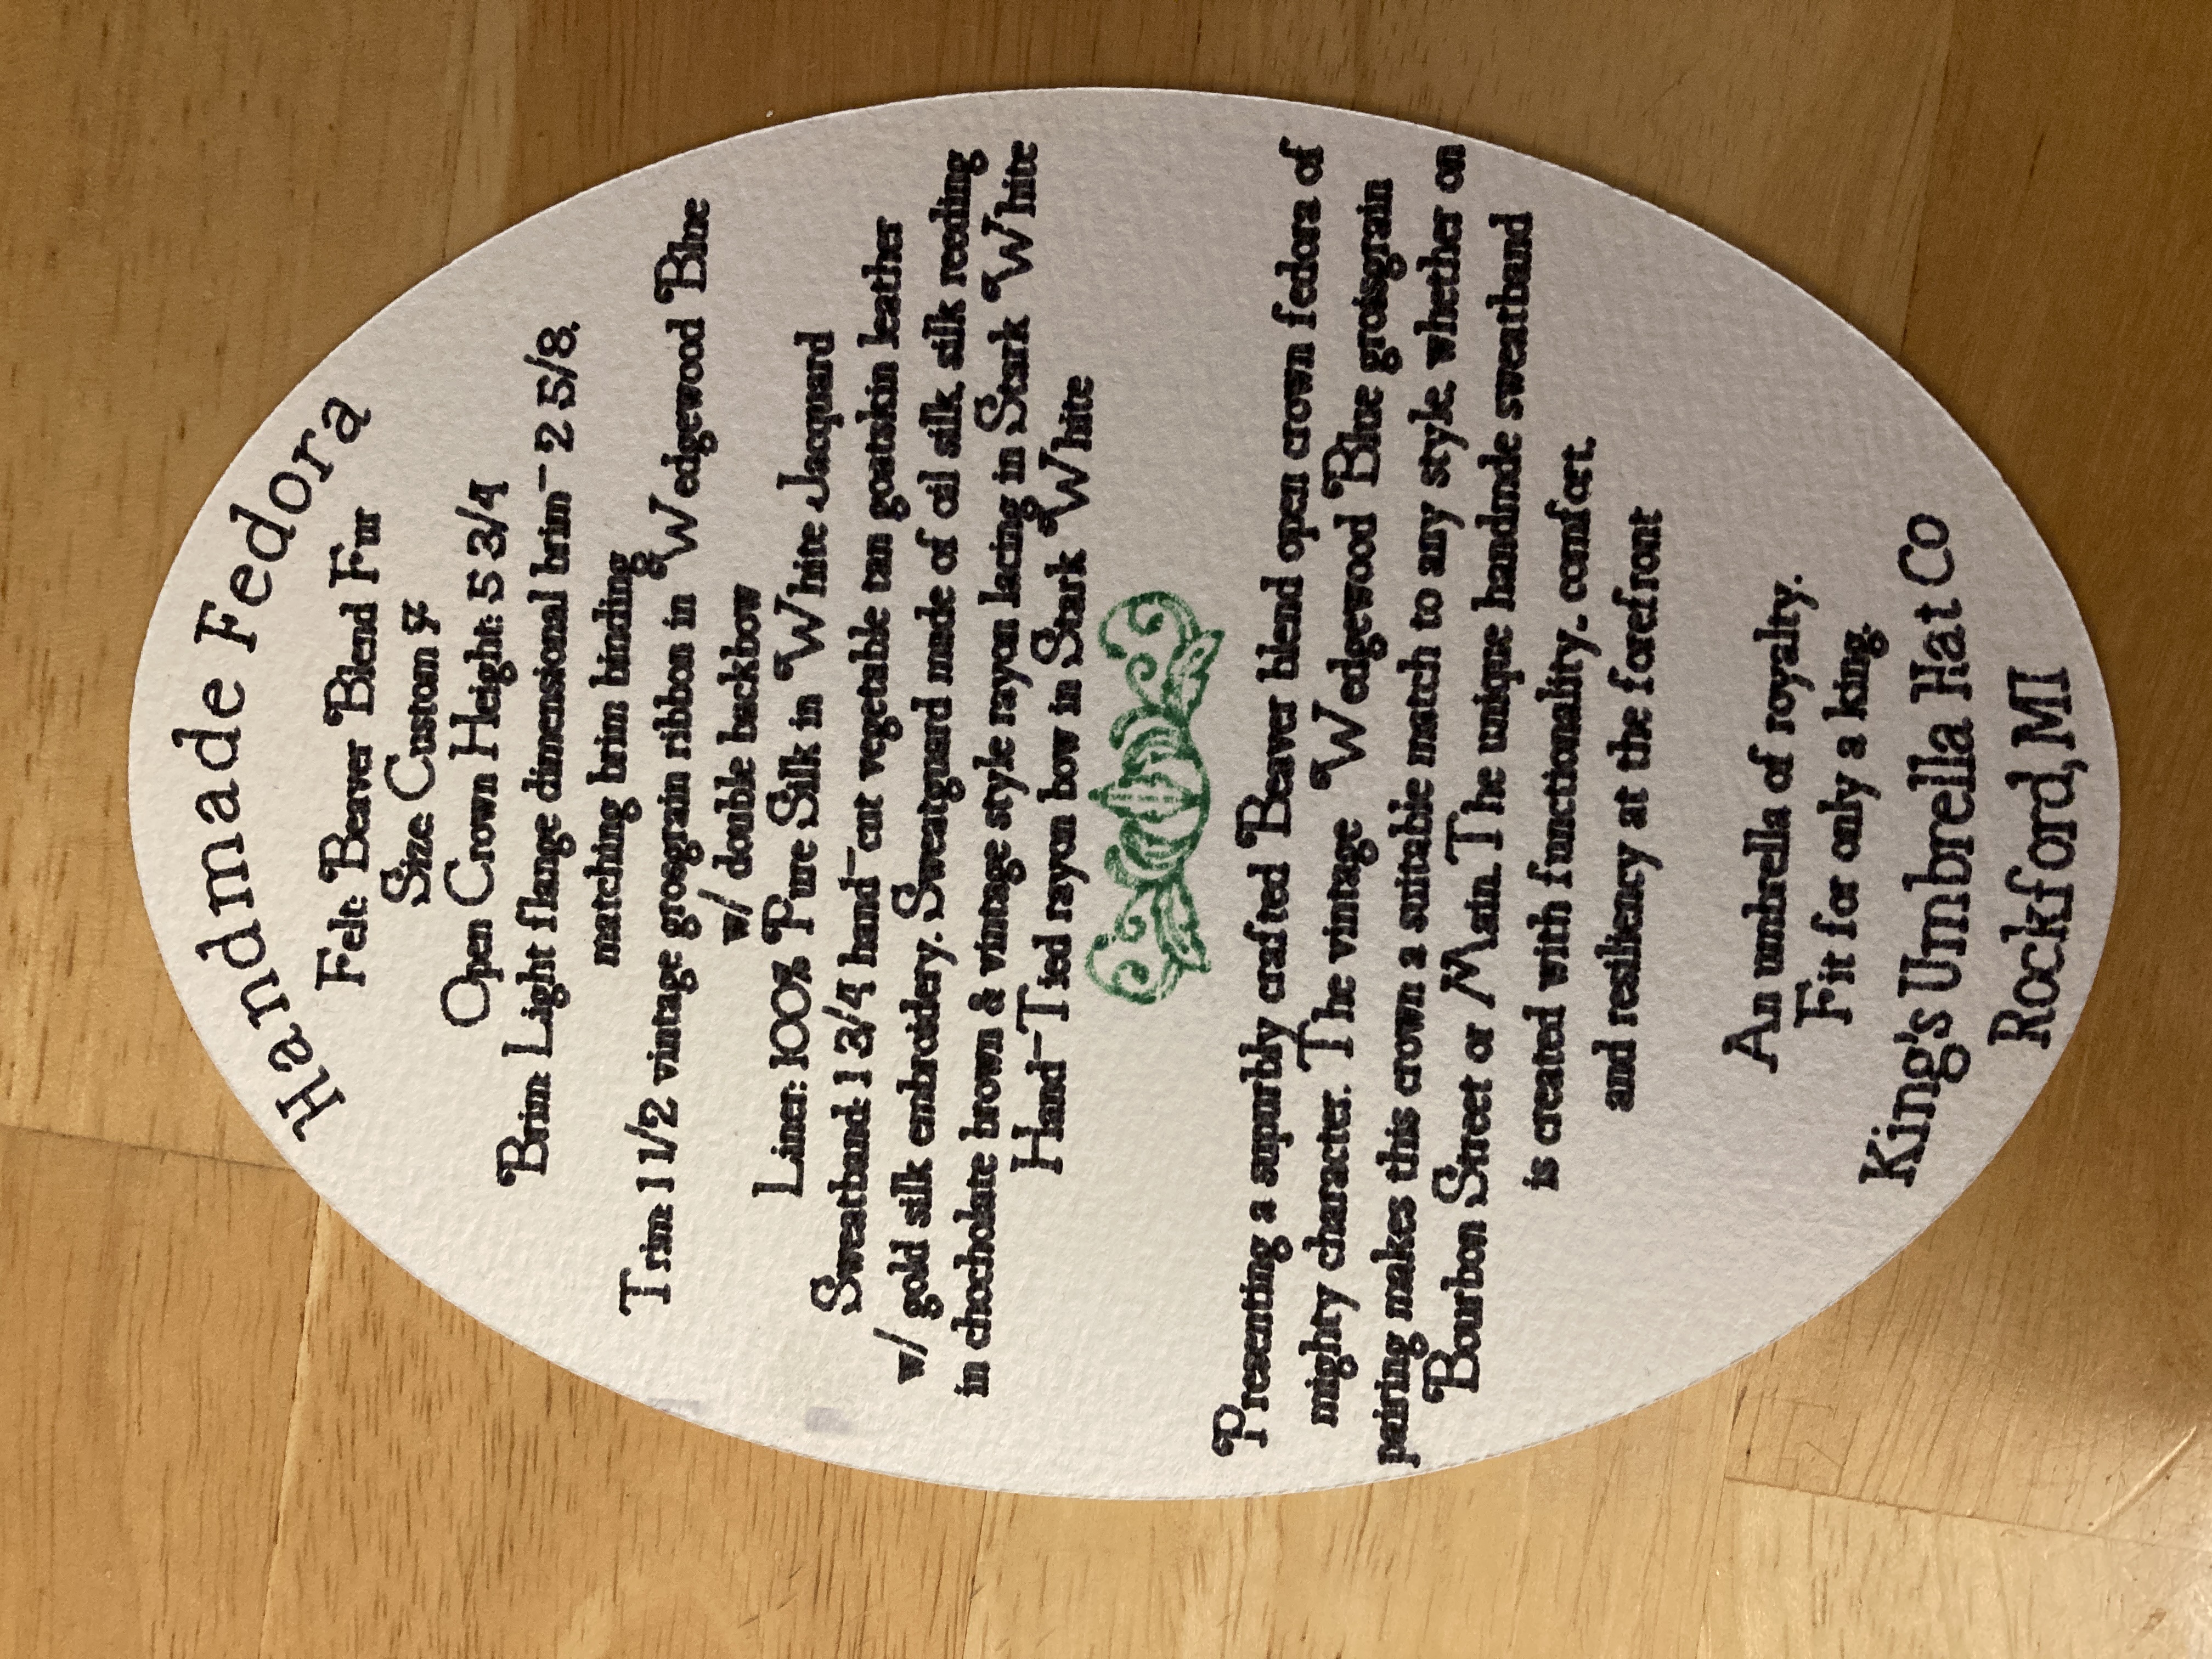 Handmade Fedora
Felt: Beaver Blend Fur
Size: Custom
Open Crown Height: 5 3/4
Brim: Light flange dimensional brim- 2 5/8,
matching brim binding
Trim: 1 1/2 vintage grosgrain ribbon in Wedgewood Blue
w/ double backbow
Liner: 100% Pure Silk in White Jacquard
Sweatband: 1 3/4 hand-cut vegetable tan goatskin leather
w/ gold silk embroidery. Sweatguard made of oil silk, silk reeding
in chocholate brown & vintage style rayon lacing in Stark White
Hand-Tied rayon bow in Stark White
Presenting a supurbly crafted Beaver blend open crown fedora of
mighty character. The vintage Wedgewood Blue groisgrain
pairing makes this crown a suitable match to any style, whether on
Bourbon Street or Main. The unique handmde sweatband
is created with functionality, comfort,
and resiliency at the forefront
An umbrella of royalty.
Fit for only a king.
King's Umbrella Hat Co
Rockford, MI